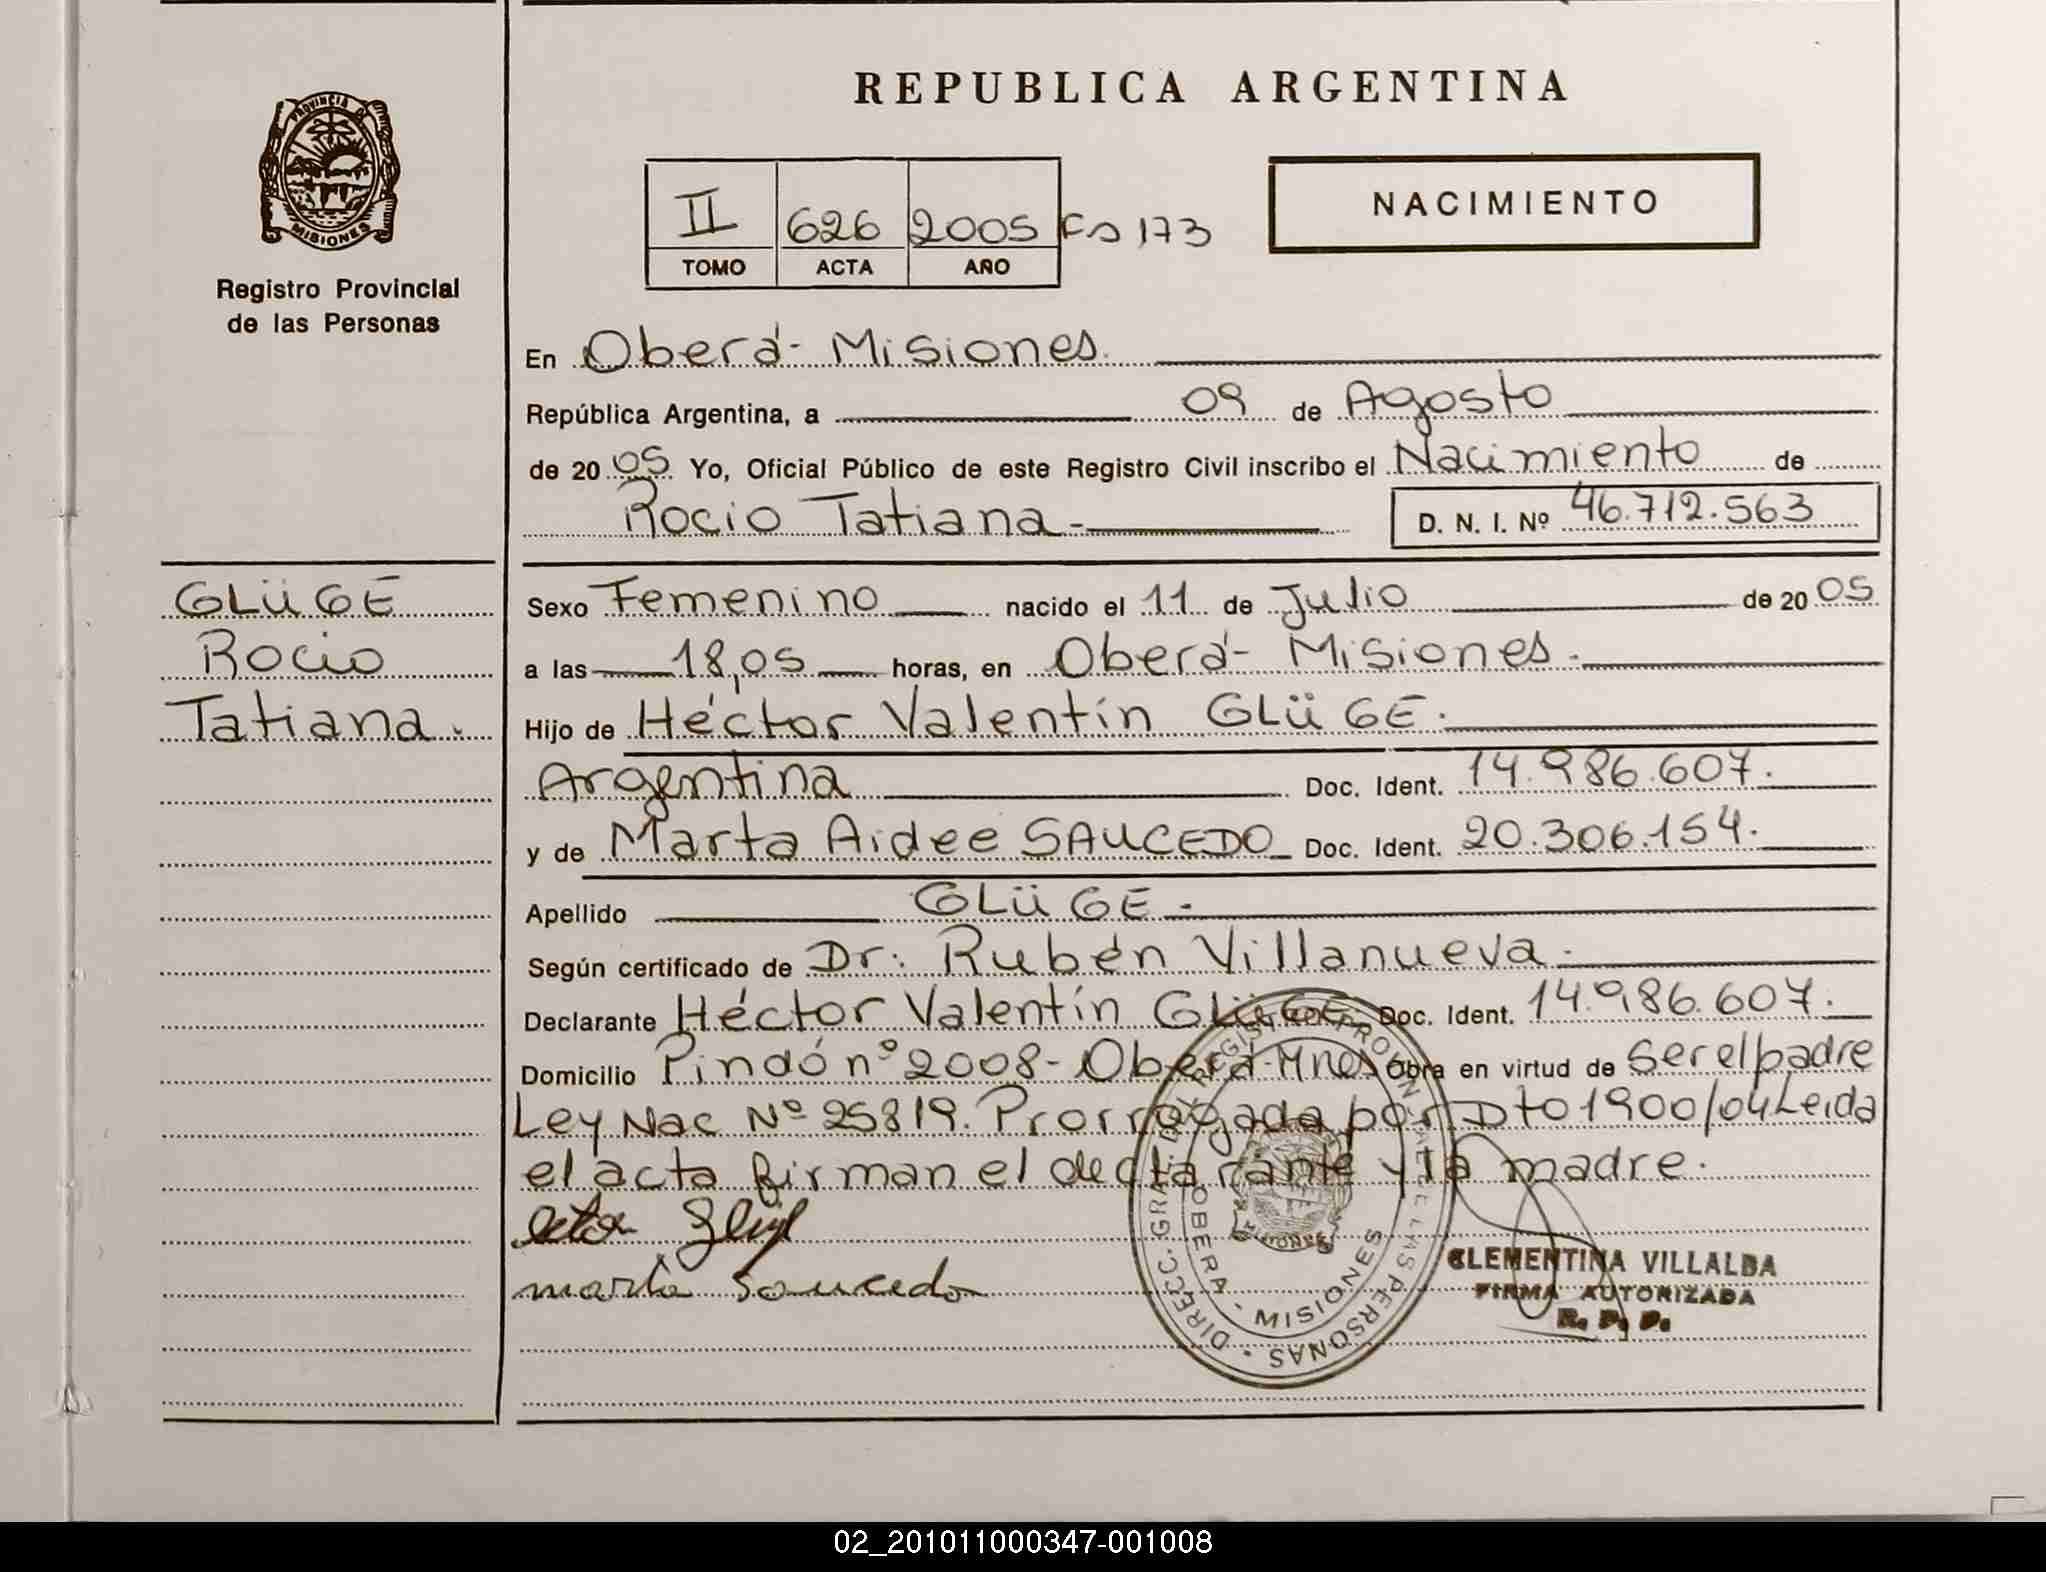 REPUBLICA ARGENTINA
PROVINCIA DE
MISIONES
Registro Provincial
de las Personas
II 626 2005 Fs 173
TOMO ACTA AÑO
NACIMIENTO
En Oberá - Misiones.
República Argentina, a 09 de Agosto
de 2005 Yo, Oficial Público de este Registro Civil inscribo el Nacimiento de
Rocio Tatiana - D. N. I. Nº 46.712.563
GLÜGE
Rocio
Tatiana.
Sexo Femenino nacido el 11 de Julio de 2005
a las 18,05 horas, en Oberá - Misiones.
Hijo de Héctor Valentín GLÜGE.
Argentina Doc. Ident. 14.986.607.
y de Marta Aidee SAUCEDO Doc. Ident. 20.306.154.
Apellido GLÜGE -
Según certificado de Dr. Rubén Villanueva.
Declarante Héctor Valentín GLÜGE Doc. Ident. 14.986.607.
Domicilio Pindó nº 2008 - Oberá - Mnes Obra en virtud de Ser el padre
Ley Nac Nº 25819. Prorrogada por Dto 1900/04 Leida
el acta firman el declarante y la madre.
marta Saucedo
DIRECC. GRAL. DEL REGISTRO PROVINCIAL DE LAS PERSONAS
OBERA - MISIONES
CLEMENTINA VILLALBA
FIRMA AUTORIZADA
R. P. P.
02_201011000347-001008